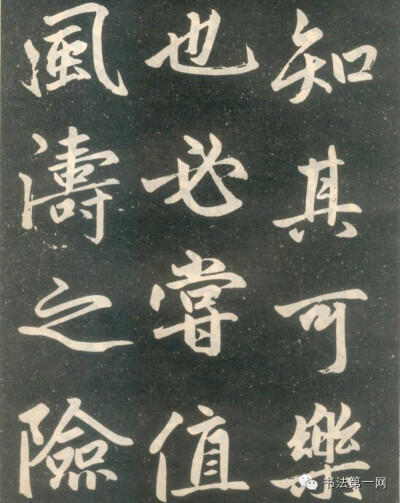 知其可樂
也必嘗值
風濤之險
书法第一网